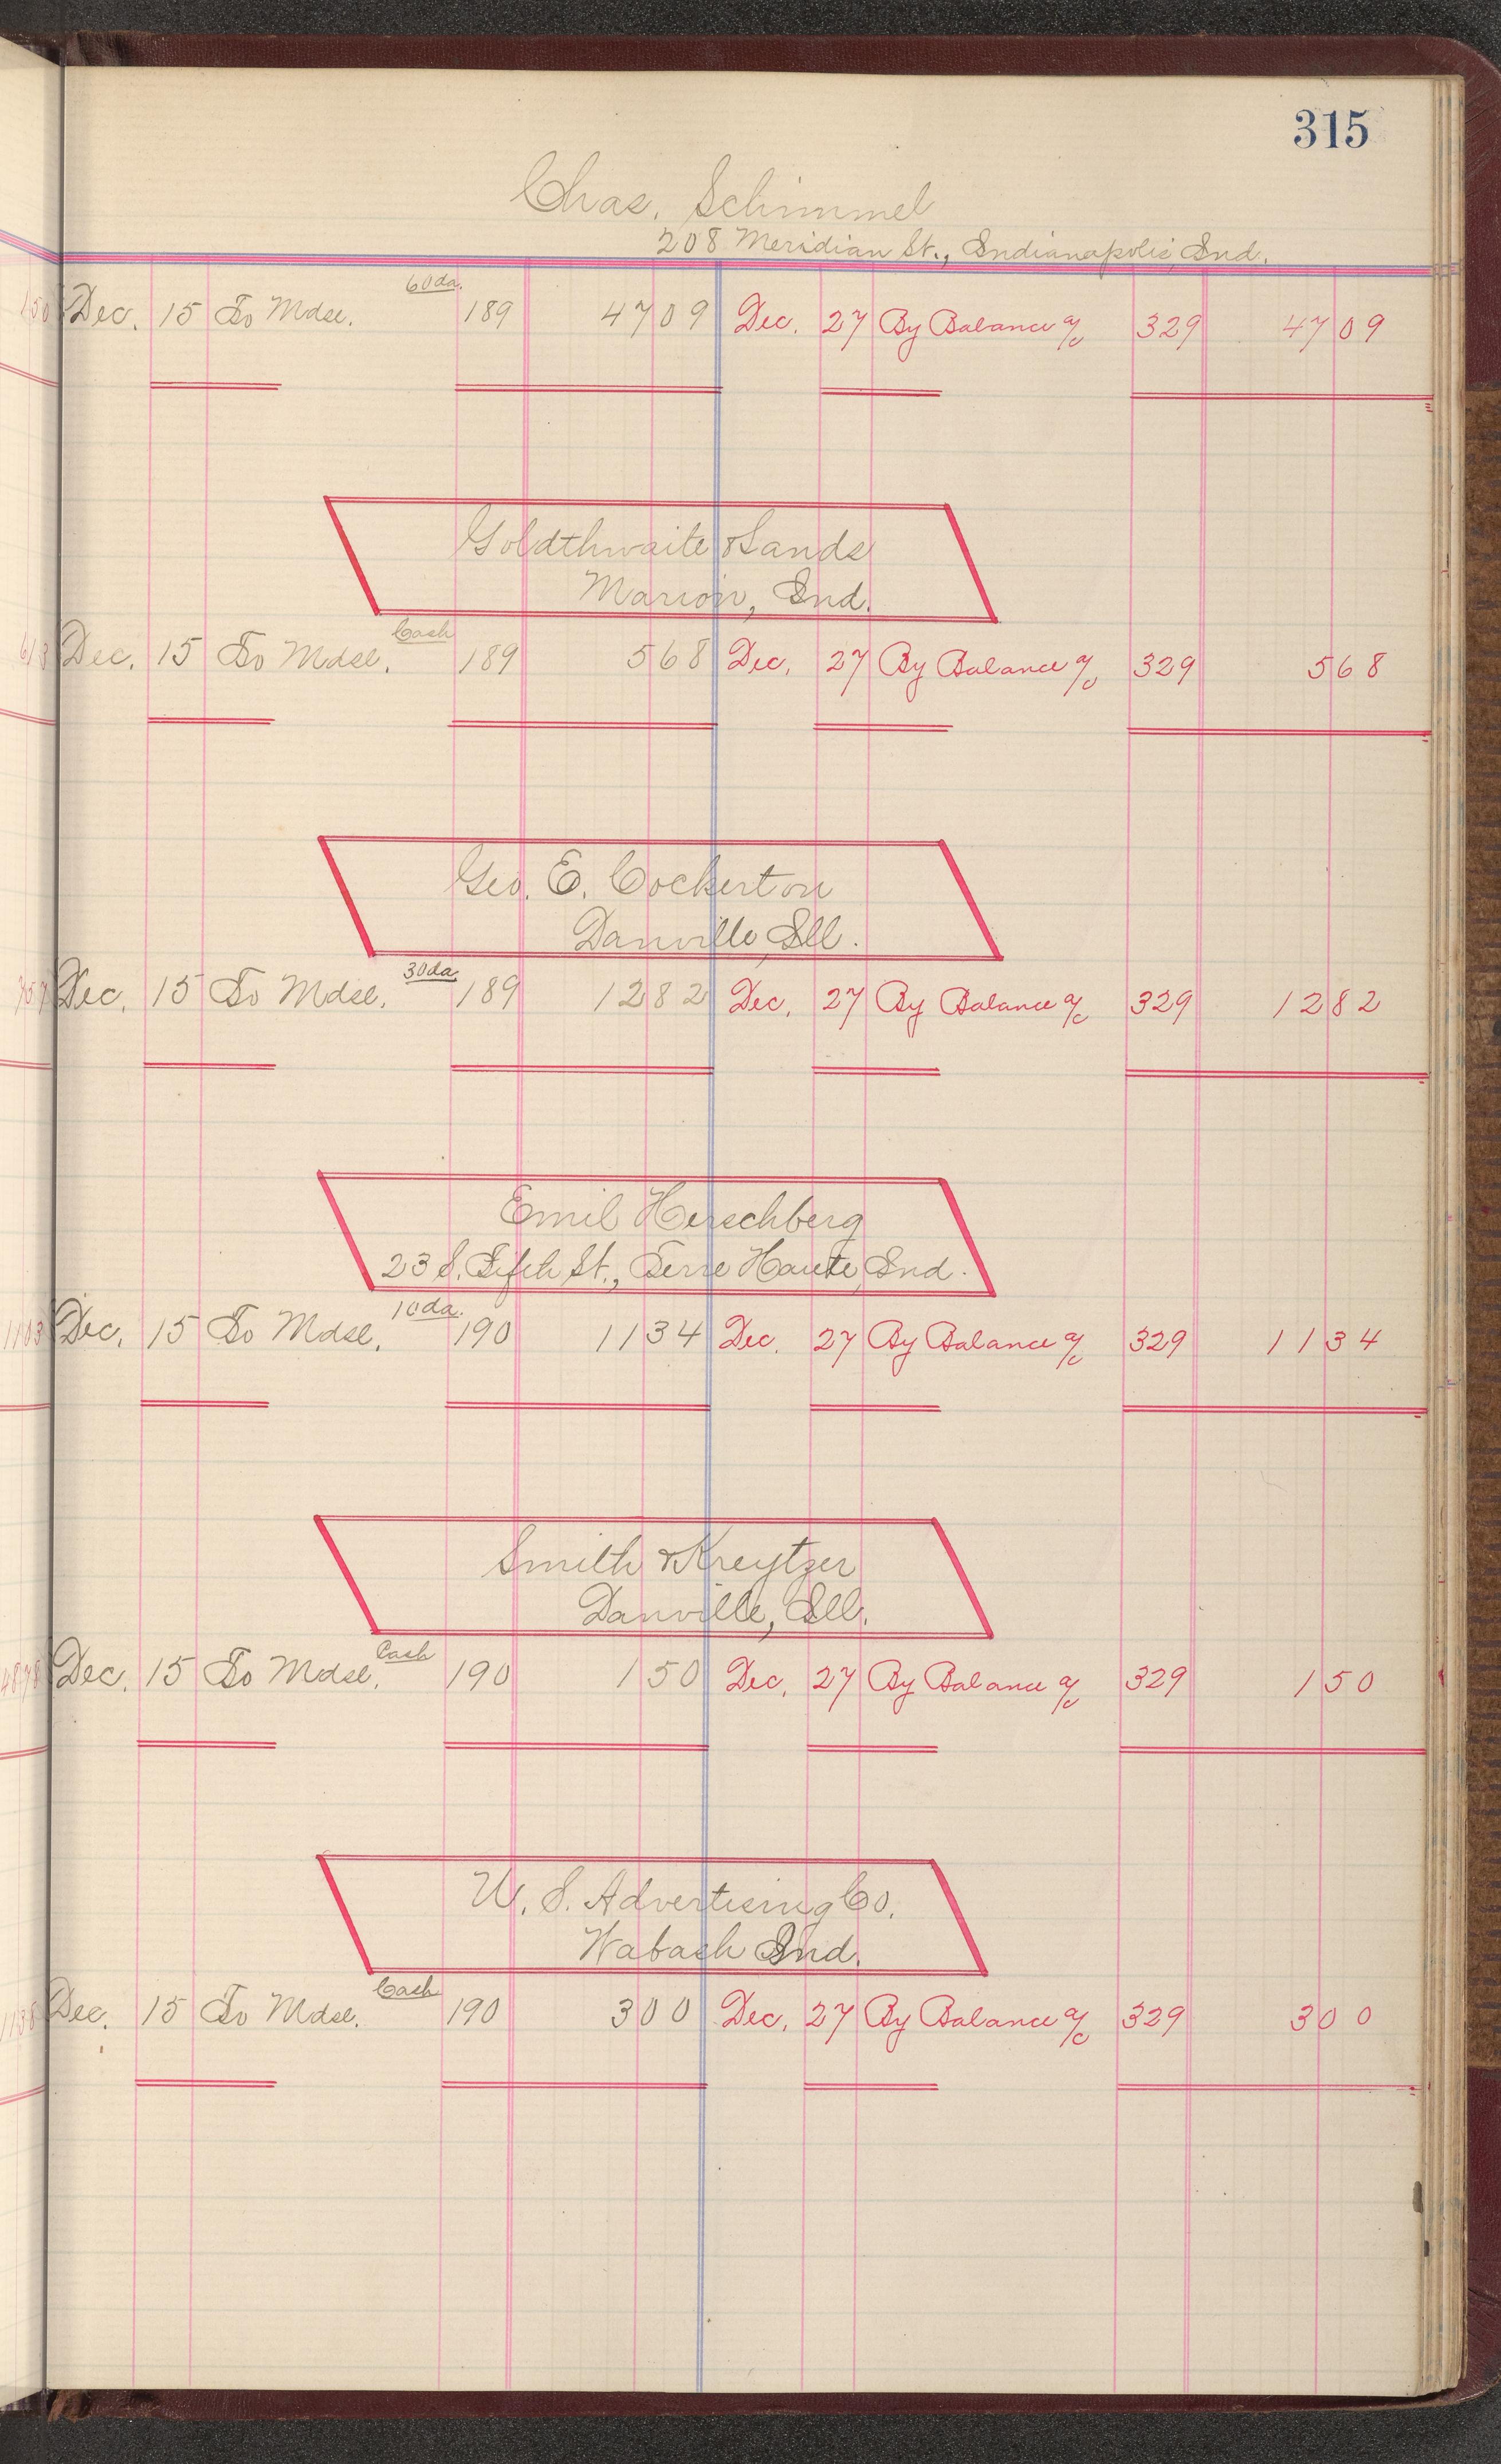 315
Chas. Schimmel
208 Meridian St., Indianapolis, Ind.
Dec. 15 To Mdse. 60da. 189 47 09 Dec. 27 By Balance a/c 329 47 09
Goldthwaite & Sands
Marion, Ind.
Dec. 15 To Mdse. Cash 189 5 68 Dec. 27 By Balance a/c 329 5 68
Geo. E. Cockerton
Danville, Ill.
Dec. 15 To Mdse. 30da 189 12 82 Dec. 27 By Balance a/c 329 12 82
Emil Herschberg
23 S. Fifth St., Terre Haute, Ind.
Dec. 15 To Mdse. 10da. 190 11 34 Dec. 27 By Balance a/c 329 11 34
Smith & Kreytzer
Danville, Ill.
Dec. 15 To Mdse. Cash 190 1 50 Dec. 27 By Balance a/c 329 1 50
U. S. Advertising Co.
Wabash Ind.
Dec. 15 To Mdse. Cash 190 3 00 Dec. 27 By Balance a/c 329 3 00